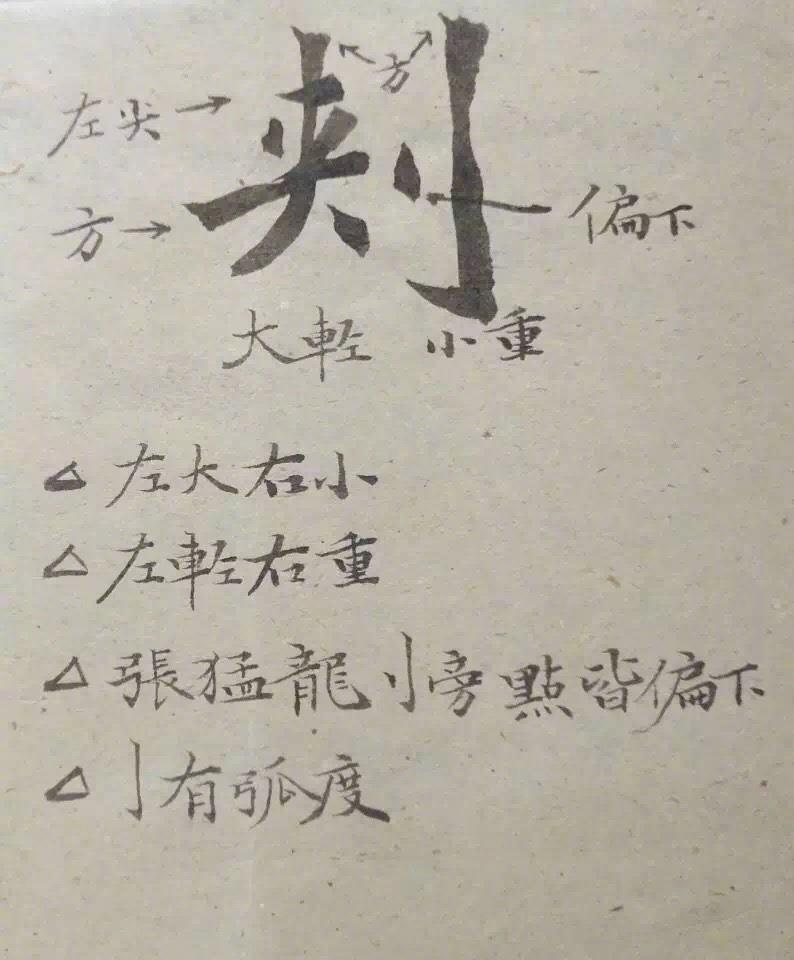 刾
方
左尖→
方→
偏下
大輕 小重
△左大右小
△左輕右重
△張猛龍刂旁點皆偏下
△亅有弧度